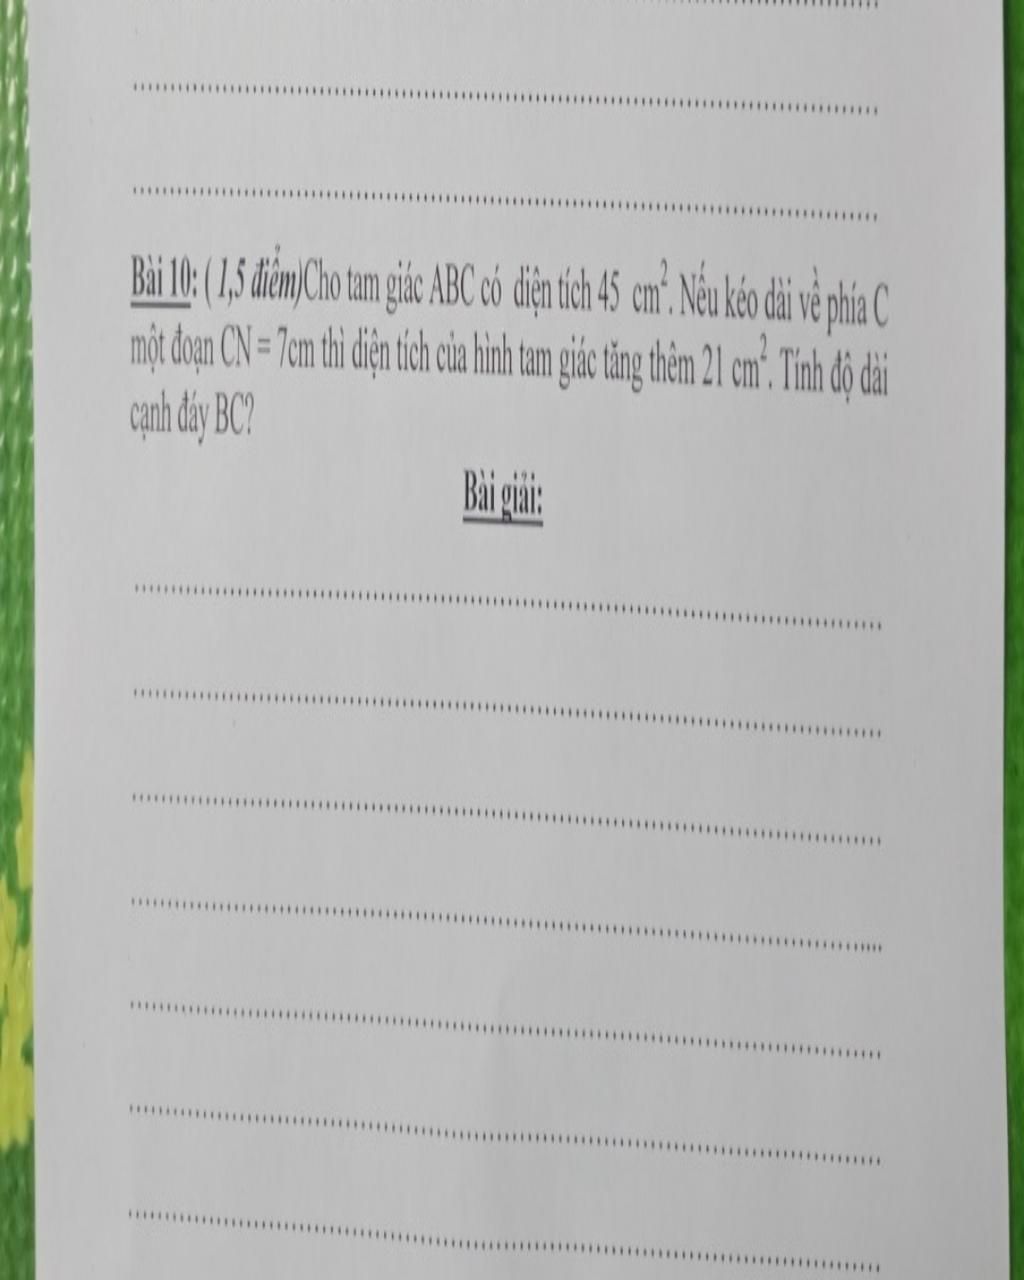 Bài 10: ( 1,5 điểm)Cho tam giác ABC có diện tích 45 cm². Nếu kéo dài về phía C
một đoạn CN = 7cm thì diện tích của hình tam giác tăng thêm 21 cm². Tính độ dài
cạnh đáy BC?
Bài giải: